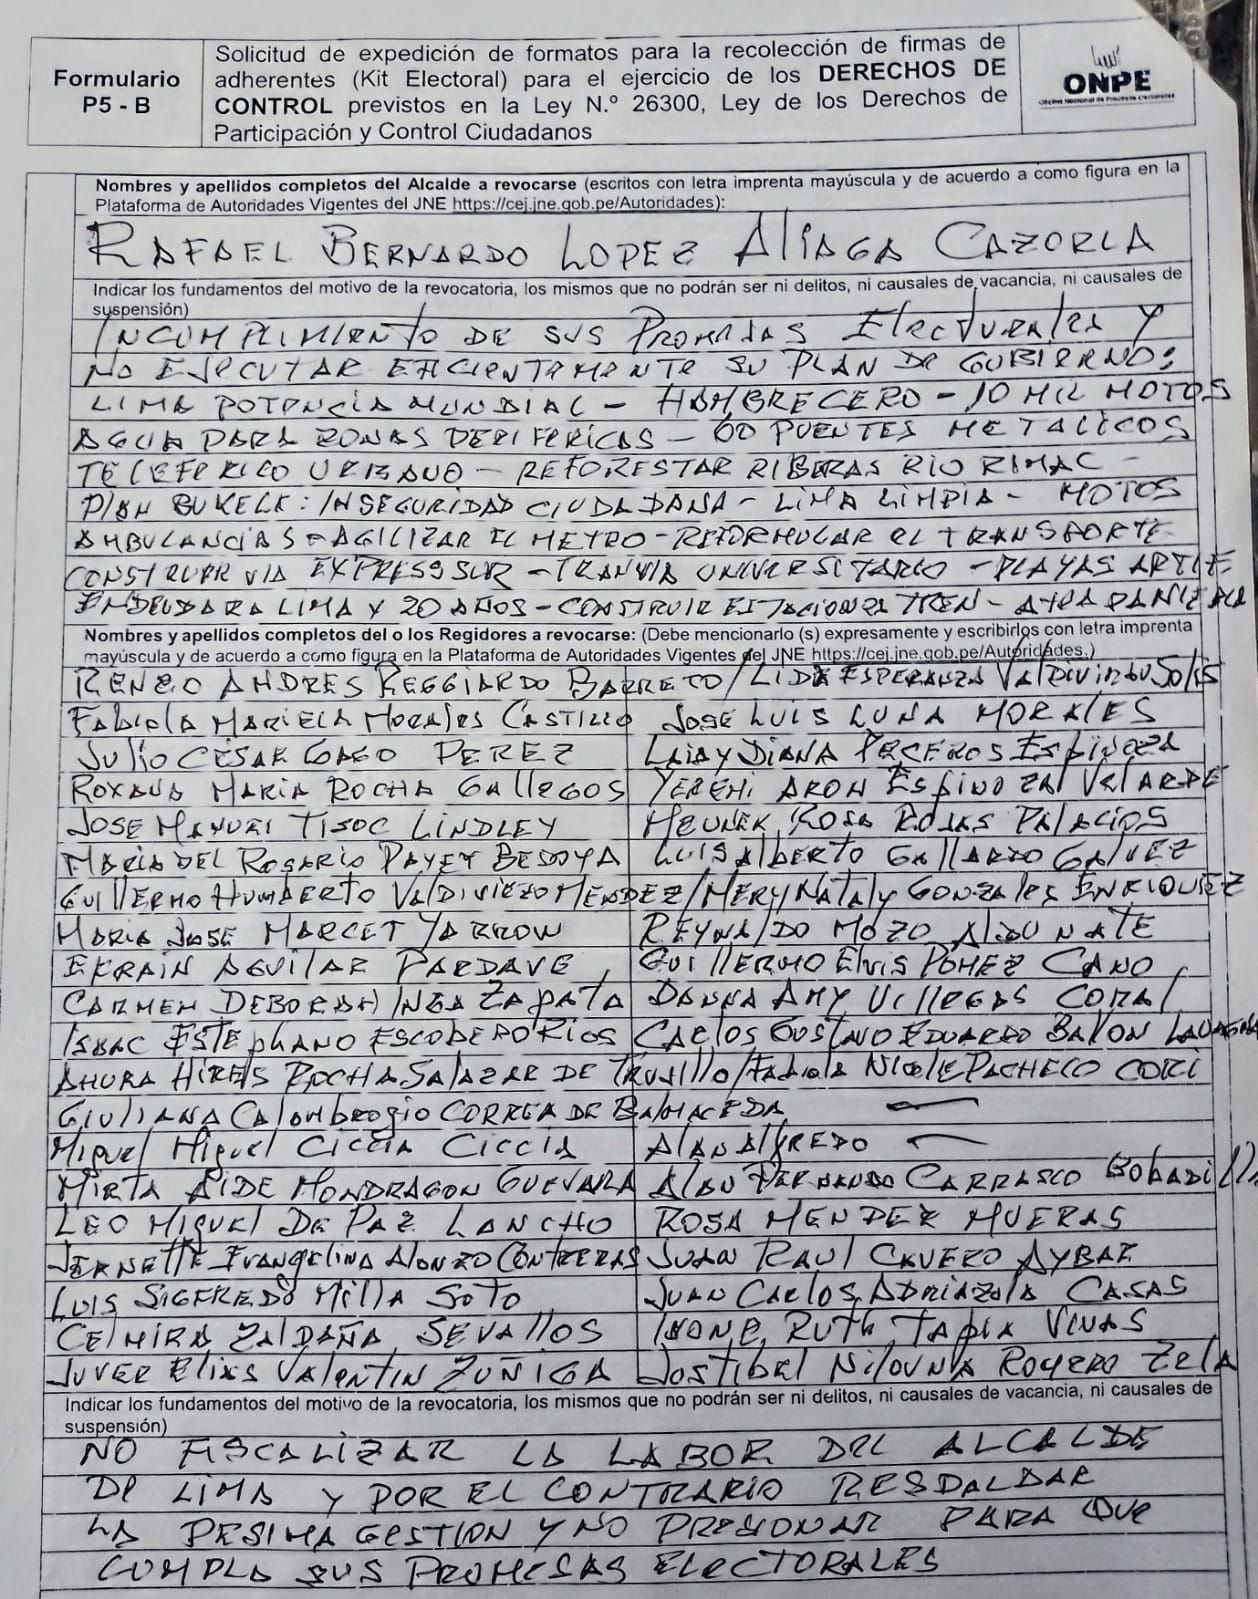 Formulario
P5 - B
Solicitud de expedición de formatos para la recolección de firmas de
adherentes (Kit Electoral) para el ejercicio de los DERECHOS DE
CONTROL previstos en la Ley N.º 26300, Ley de los Derechos de
Participación y Control Ciudadanos
ONPE
Oficina Nacional de Procesos Electorales
Nombres y apellidos completos del Alcalde a revocarse (escritos con letra imprenta mayúscula y de acuerdo a como figura en la
Plataforma de Autoridades Vigentes del JNE https://cej.jne.gob.pe/Autoridades):
RAFAEL BERNARDO LOPEZ AliAGA CAZORLA
Indicar los fundamentos del motivo de la revocatoria, los mismos que no podrán ser ni delitos, ni causales de vacancia, ni causales de
suspensión)
INCUMPLIMIENTO DE SUS PROMESAS ElECTURALES Y
NO EJECUTAR EFICIENTEMENTE SU PLAN DE GUBIERNO:
LIMA POTENCIA MUNDIAL - HAMBRE CERO - 10 MIL MOTOS
AGUA PARA ZONAS PERIFERICAS - 60 PUENTES METALICOS
TELEFERICO URBANO - REFORESTAR RIBERAS RIO RIMAC -
PlAN BUKELE: INSEGURIDAD CIUDADANA - LIMA LIMPIA - MOTOS
AMBULANCIAS - AGILIZAR EL METRO - REFORMULAR EL TRANSPORTE
CONSTRUIR VIA EXPRESS SUR - TRANVIA UNIVERSITARIO - PLAYAS ARTIF
ENDEUDAR A LIMA X 20 AÑOS - CONSTRUIR ESTACIONES TREN -
Nombres y apellidos completos del o los Regidores a revocarse: (Debe mencionarlo (s) expresamente y escribirlos con letra imprenta
mayúscula y de acuerdo a como figura en la Plataforma de Autoridades Vigentes del JNE https://cej.jne.gob.pe/Autoridades.)
RENZO ANDRES REGGIARDO BARRETO / LIDA ESPERANZA Solis
FabiolA MARIELA MorAles CASTILLO JOSE LUIS LUNA MORALES
JUliO CÉSAR GAGO PEREZ LAIdy DIANA PECEROS EspiNOZA
ROXANA MARIA ROCHA GAllEGOS YEREMI ARON EspiNOZA VElARDE
JOSE MANUEl TISOC LINDLEY ROSA ROJAS PALACIOS
MARIA DEL ROSARIO PAYET BEDOYA LUIS AlBERTO GAllARDO GALVEZ
GUIllERMO HUMBERTO VAlDIVIEZO MENDEZ / MERY NATALY GONZALES ENRIQUEZ
MARIA JOSE MARCET YARROW REYNAlDO MOZO AlDUNATE
EFRAIN AGUILAR PARDAVE GUIllERMO ElVIS POMEZ CANO
CARMEN DEBORAH INGA ZApATA DANNA AMY VIllEGAS CORAl
ISAAC ESTEphANO ESCOBEDO RIOS CARlOS GUSTAVO EDUARDO BAlON
AHURA HIRES ROCHA SALAZAR DE TRUJIllO / FAbiolA NICOlE PACHECO CORI
GIULIANA CAlAMbROgiO CORREA DE BALMACEDA
Miguel Miguel CICCIA CICCIA AlAN AlfREDO
MIRTA AIDE MONDRAGON GUEVARA AlAN FERNANDO CARRASCO BObADIllA
LEO MIgUEL DE PAZ LANCHO ROSA MENDEZ MUERAS
JERNETTE EvANgeliNA AlONZO CONTRERAS JUAN RAUl CAVERO AYBAR
LUIS SIGFREDO MillA SOTO JUAN CARlOS ADRIAZOlA CASAS
CElMIRA ZAlDAÑA SEVAllOS IVONE RUTH TApIA VIVAS
JUVER ElIAS VAlENTIN ZUÑIGA ROMERO ZElA
Indicar los fundamentos del motivo de la revocatoria, los mismos que no podrán ser ni delitos, ni causales de vacancia, ni causales de
suspensión)
NO FISCALIZAR LA LABOR DEL ALCALDE
DE LIMA Y POR EL CONTRARIO RESPALDAR
LA PESIMA GESTION Y NO PRESIONAR PARA QUE
CUMPLA SUS PROMESAS ELECTORALES